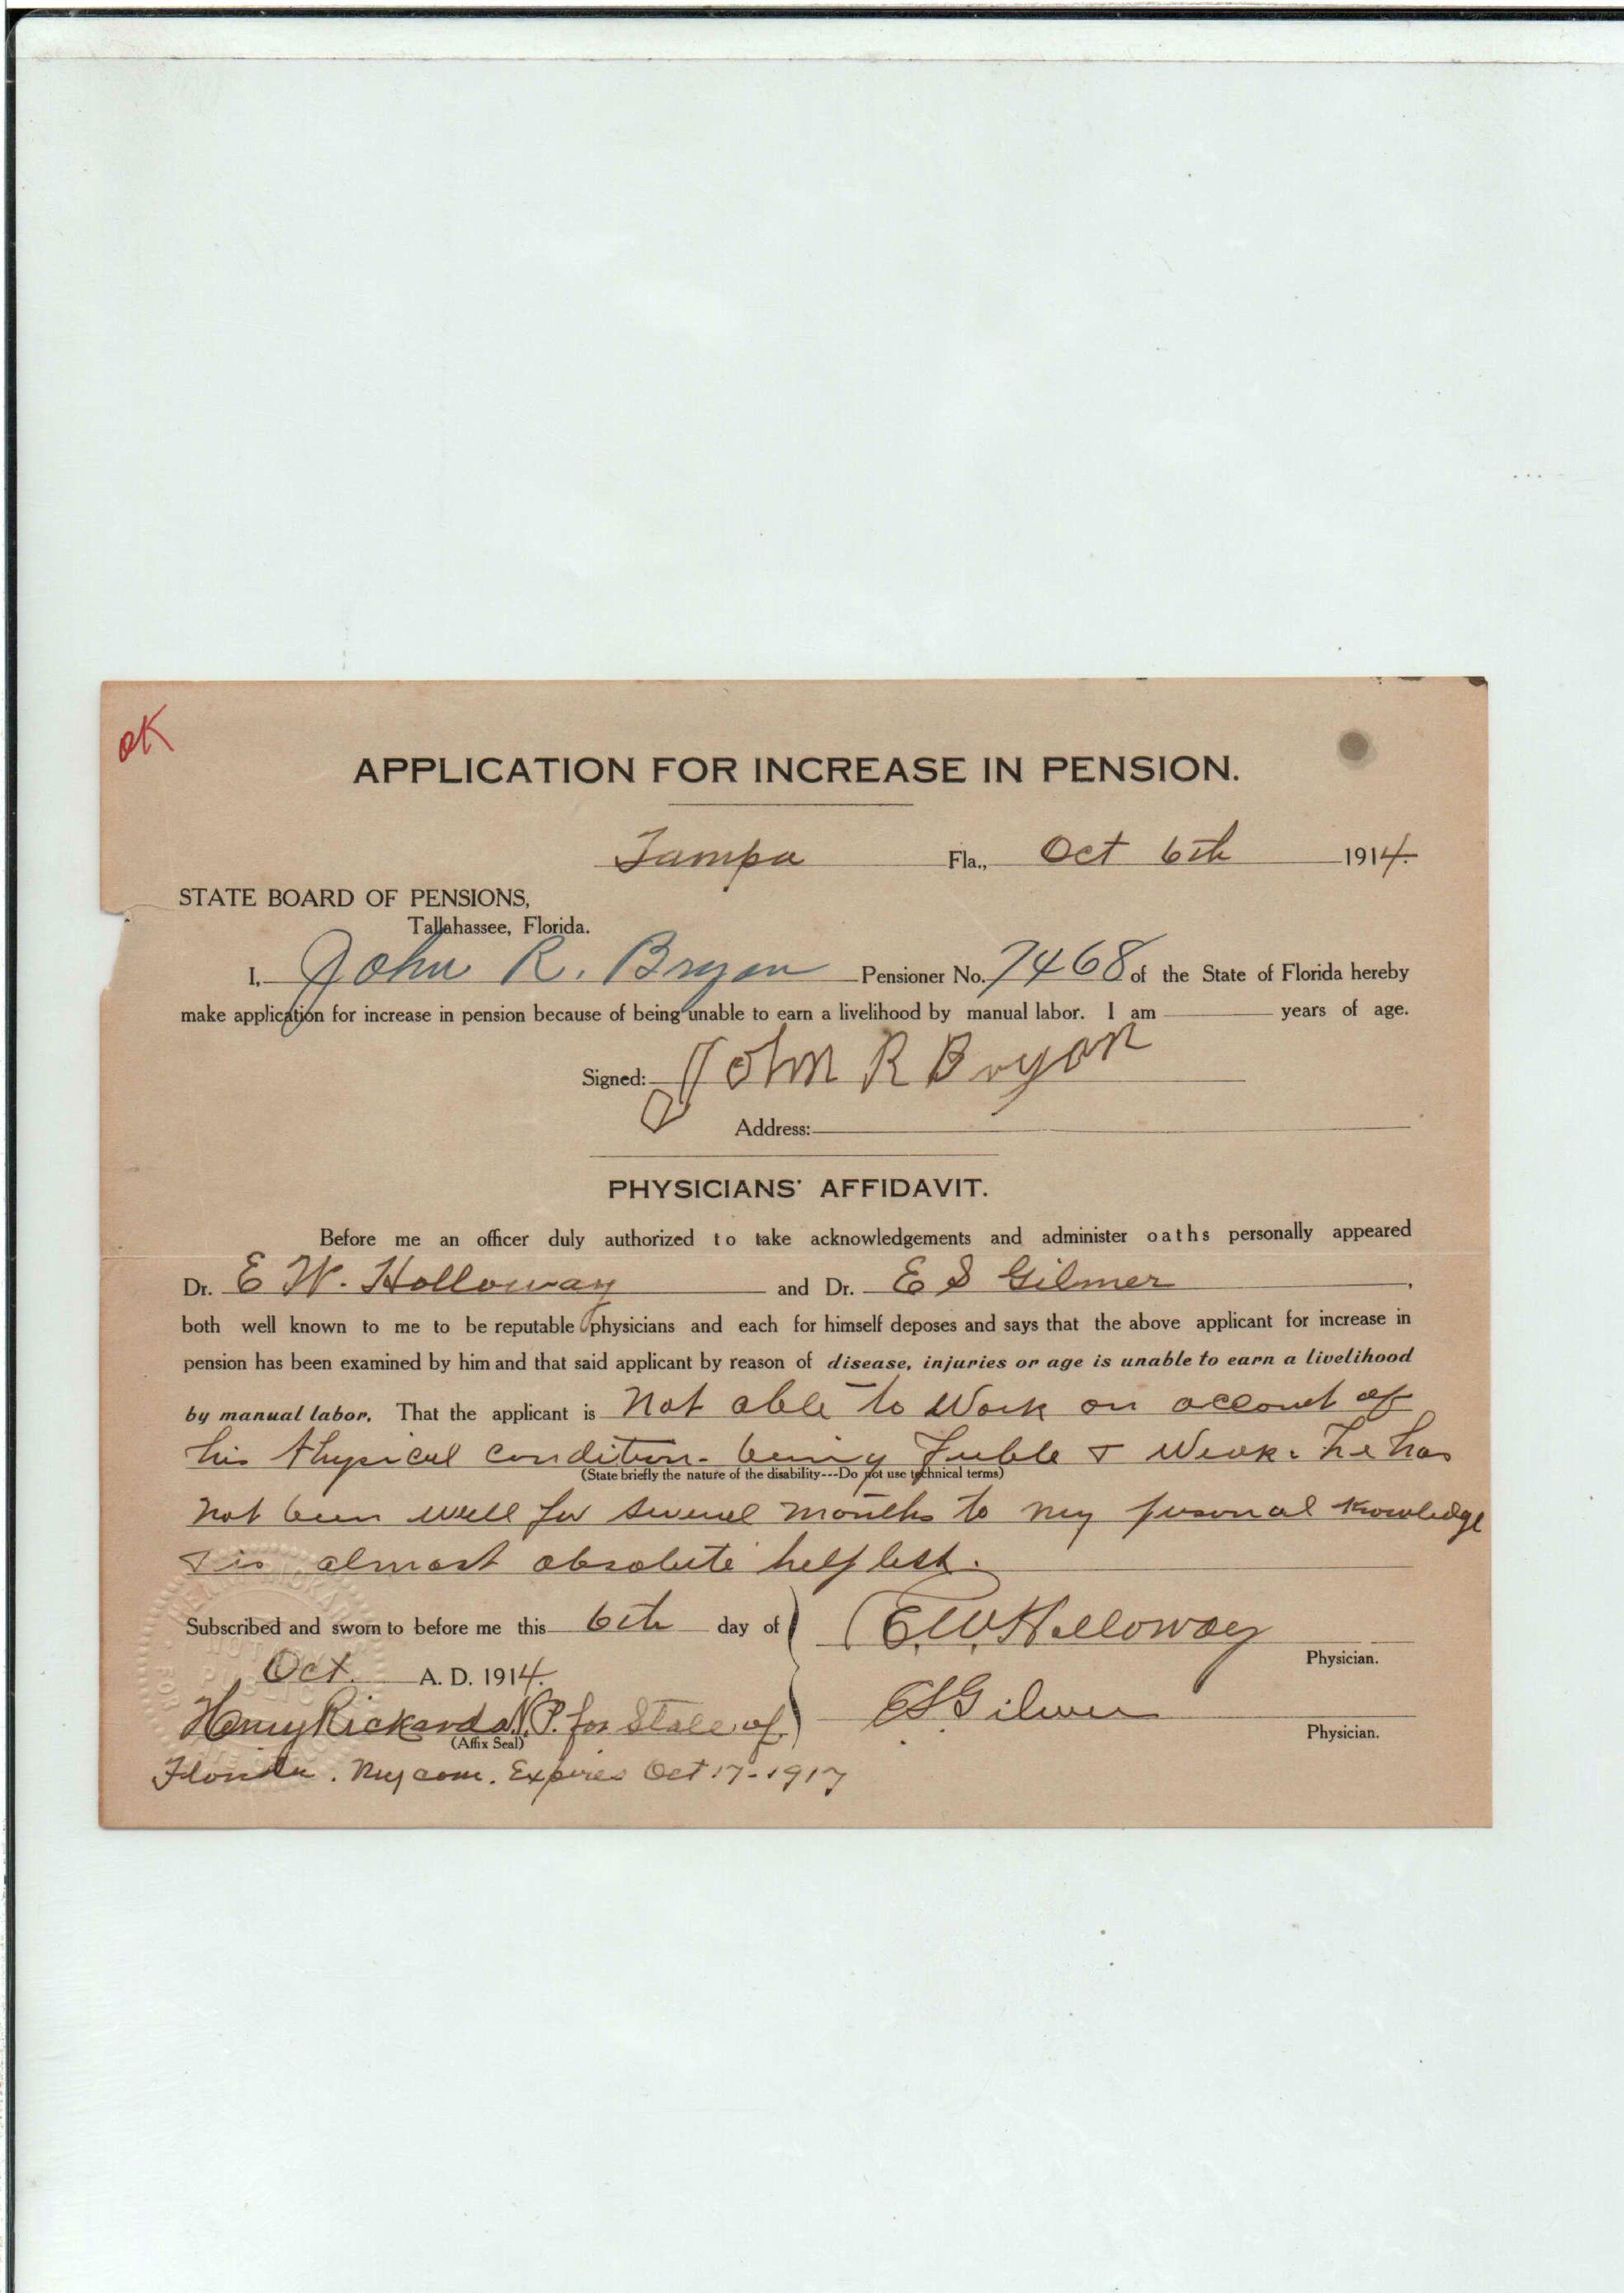 OK
APPLICATION FOR INCREASE IN PENSION.
Tampa Fla., Oct 6th 1914.
STATE BOARD OF PENSIONS,
Tallahassee, Florida.
I, John R. Bryan Pensioner No. 7468 of the State of Florida hereby
make application for increase in pension because of being unable to earn a livelihood by manual labor. I am years of age.
Signed: John R Bryan
Address:
PHYSICIANS' AFFIDAVIT.
Before me an officer duly authorized to take acknowledgements and administer oaths personally appeared
Dr. E W. Holloway and Dr. E S Gilmer.
both well known to me to be reputable physicians and each for himself deposes and says that the above applicant for increase in
pension has been examined by him and that said applicant by reason of disease, injuries or age is unable to earn a livelihood
by manual labor. That the applicant is Not able to Work on account of
his Physical condition - being Feeble & Weak. he has
(State briefly the nature of the disability---Do not use technical terms)
not been well for several months to my personal knowledge
& is almost absolute helpless.
Subscribed and sworn to before me this 6th day of
E.W. Holloway
Physician.
Oct. A. D. 1914.
Henry Rickards N.P. for State of
(Affix Seal)
E S Gilmer
Physician.
Florida. My com. Expires Oct 17-1917
NOTARY
PUBLIC
FOR